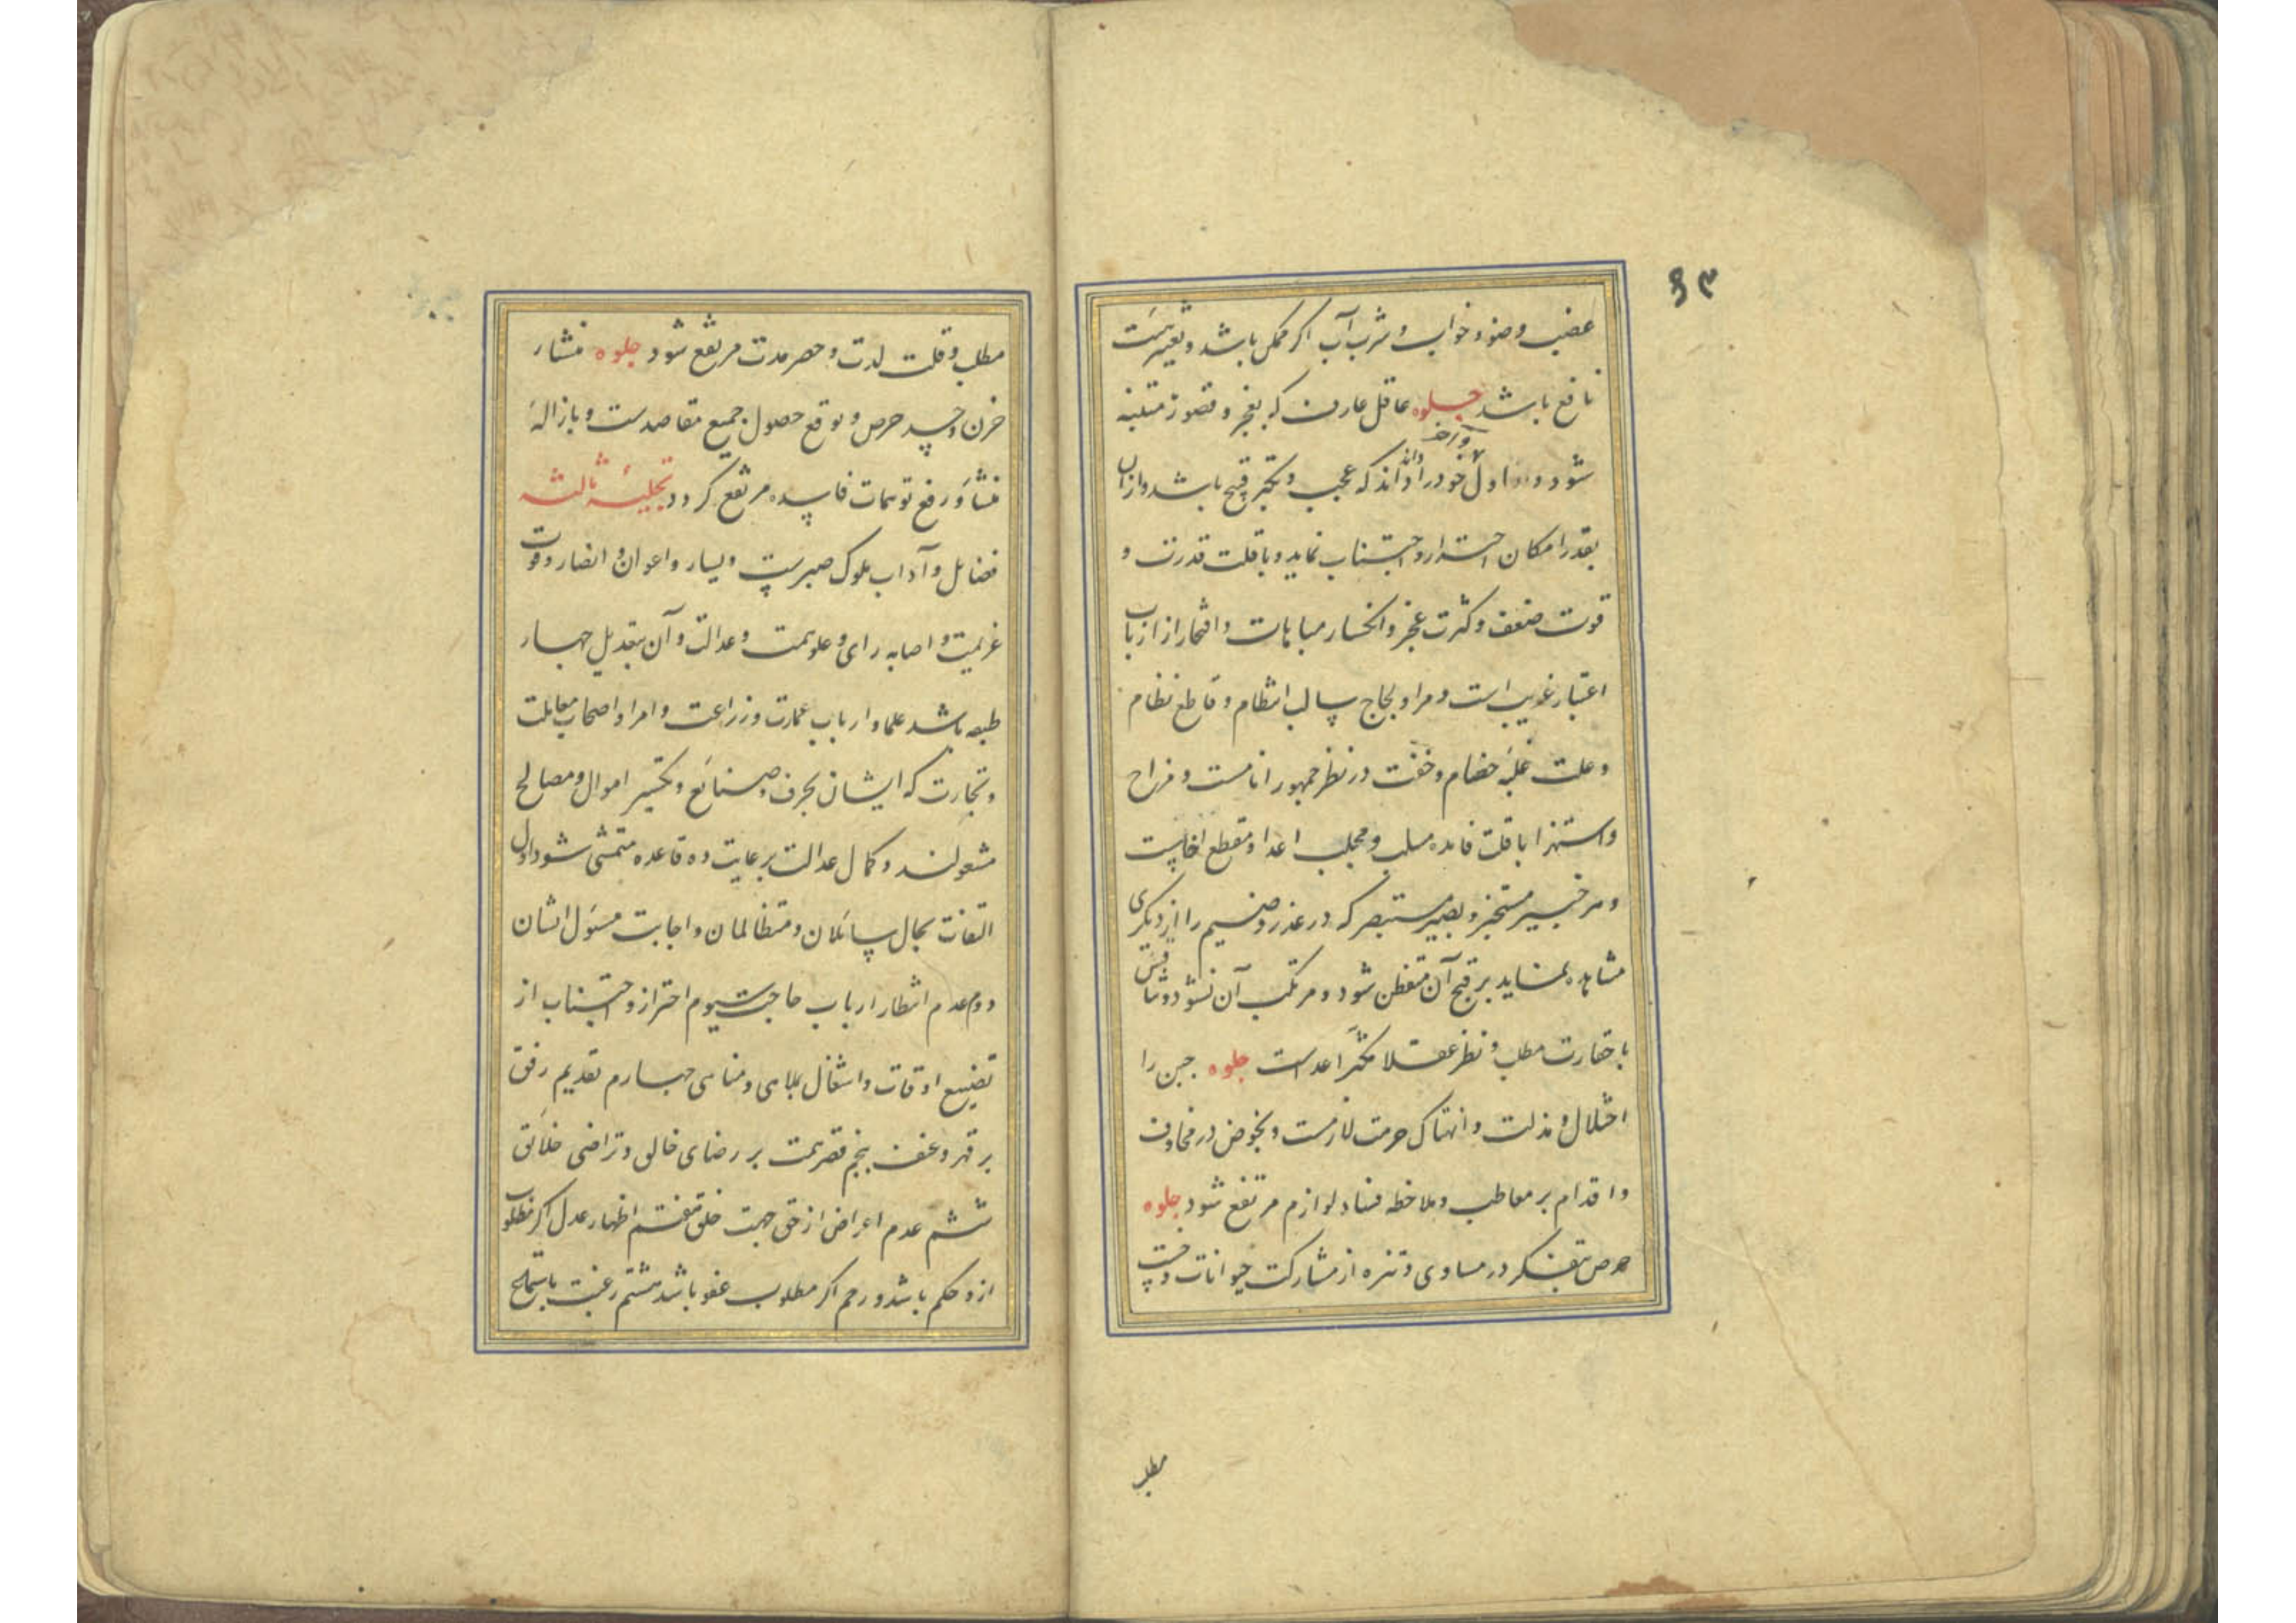 ۶۳
غضب وضو و خواب و شرب آب اگر ممکن باشد و تغییر هیئت
نافع باشد جلوه عاقل عارف که بعجز و قصور متنبه
شود و اول خود را داند که عجب و تکبر قبیح باشد و از آن
بقدر امکان احتراز و اجتناب نماید و با قلت قدرت و
قوت ضعف و کثرت عجز و انکسار مباهات و افتخار از ارباب
اعتبار غریب است و مرا و لجاج سالب انتظام و قاطع نظام
و علت غلبه خصام و خفت در نظر جمهور انامست و مزاح
و استهزا با قلت فایده مسلب و مجلب اعدا و مقطع اخاست
و مرد خبیر مستخبر و بصیر مستبصر که در غدر و ضیم را از دیگری
مشاهده نماید بر قبح آن متفطن شود و مرتکب آن نشود و تنافس
با حقارت مطلب و نظر عقلا مکثر اعداست جلوه جبن را
اختلال و مذلت و انهتاک حرمت لازمست و بخوض در مخاوف
و اقدام بر معاطب و ملاحظه فساد لوازم مرتفع شود جلوه
حرص بتفکر در مساوی و تنزه از مشارکت حیوانات و خست
مطلب
مطلب و قلت لذت و حصر مدت مرتفع شود جلوه منشاء
حزن و حسد حرص و توقع حصول جمیع مقاصدست و بازالهٔ
منشأ و رفع توهمات فاسده مرتفع گردد تجلیهٔ ثالثه
فضائل و آداب ملوک صبرست و یسار و اعوان و انصار و قوت
عزیمت و اصابه رای و علو همت و عدالت و آن بتعدیل چهار
طبقه باشد علما و ارباب عمارت و زراعت و امرا و اصحاب معاملت
و تجارت که ایشان بحرف و صنایع و تکثیر اموال و مصالح
مشغولند و کمال عدالت برعایت ده قاعده متمشی شود اول
التفات بحال سائلان و متظالمان و اجابت مسئول ایشان
دوم عدم انتظار ارباب حاجت سیوم احتراز و اجتناب از
تضییع اوقات و اشغال بملاهی و مناهی چهارم تقدیم رفق
بر قهر و عنف پنجم قصر همت بر رضای خالق و تراضی خلائق
ششم عدم اعراض از حق جهت خلق هفتم اظهار عدل اگر مطلوب
ازو حکم باشد و رحم اگر مطلوب عفو باشد هشتم رغبت باستملح